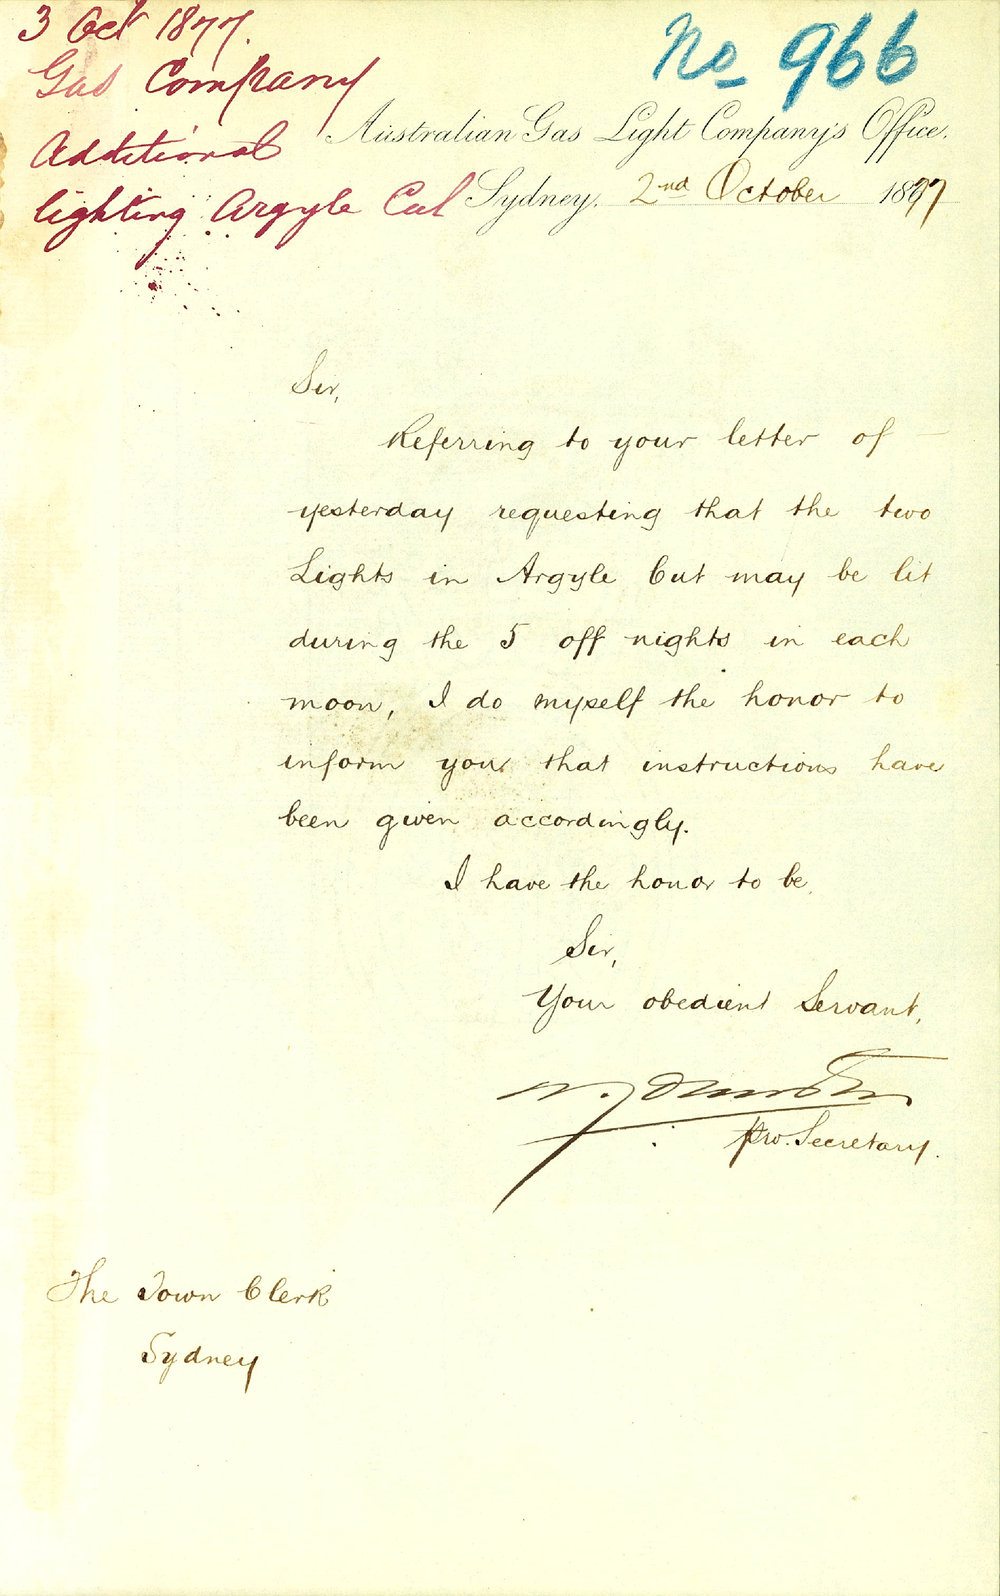 3 Oct 1877.
Gas Company
Additional
lighting Argyle Cut
No 966
Australian Gas Light Company's Office.
Sydney, 2nd October 1877
Sir,
Referring to your letter of
yesterday requesting that the two
Lights in Argyle Cut may be lit
during the 5 off nights in each
moon, I do myself the honor to
inform you that instructions have
been given accordingly.
I have the honor to be
Sir,
Your obedient Servant,
pro. Secretary.
The Town Clerk
Sydney